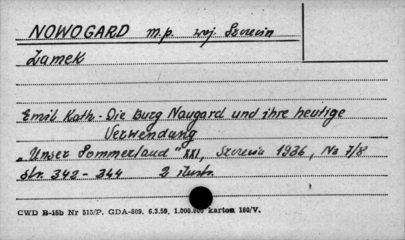 NOWOGARD m.p. woj. Szczecin
Zamek
Emil Kath. - Die Burg Naugard und ihre heutige
Verwendung
„Unser Pommerland" XXI, Szczecin 1936, No 7/8
str. 342 - 344 2 ilustr.
CWD B-15b Nr 515/P. GDA-809. 6.3.59. 1.000.000 kartek 180/V.